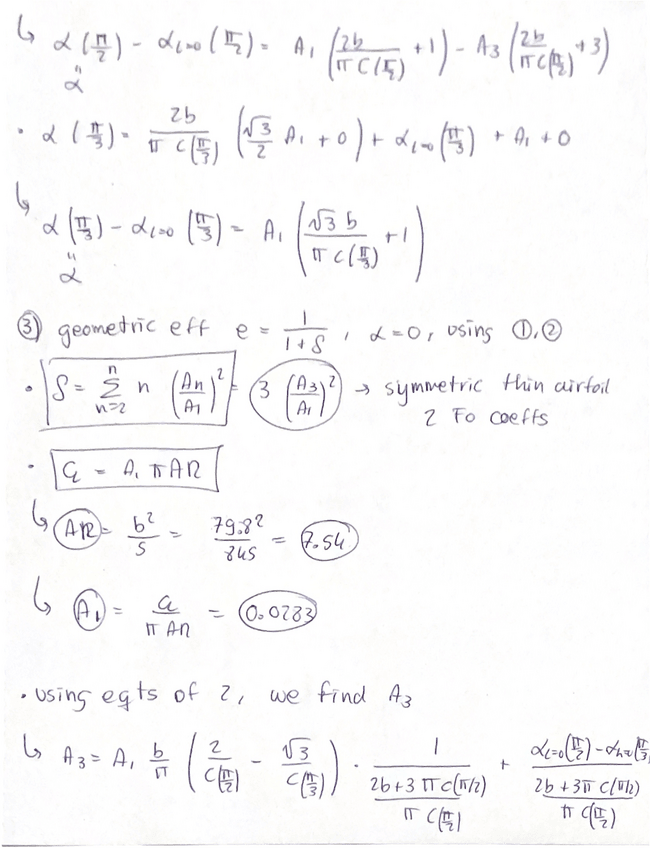 ↳ α(π/2) - α_{L=0}(π/2) = A₁ (2b/(π C(π/2)) + 1) - A₃ (2b/(π C(π/2)) + 3)
"
α
• α(π/3) = 2b/(π C(π/3)) (√3/2 A₁ + 0) + α_{L=0}(π/3) + A₁ + 0
↳ α(π/3) - α_{L=0}(π/3) = A₁ (√3 b/(π C(π/3)) + 1)
"
α
③ geometric eff e = 1/(1+δ), α=0, using ①,②
• δ = Σ_{n=2}^{n} n (An/A₁)² = 3 (A₃/A₁)² → symmetric thin airfoil
2 Fo coeffs
• C_L = A₁ π AR
↳ AR = b²/S = 79.8²/845 = 7.54
↳ A₁ = C_L/(π AR) = 0.0283
• using eqts of 2, we find A₃
↳ A₃ = A₁ b/π (2/C(π/2) - √3/C(π/3)) · 1/((2b+3πC(π/2))/(πC(π/2))) + (α_{L=0}(π/2) - α_{L=0}(π/3))/((2b+3πC(π/2))/(πC(π/2)))